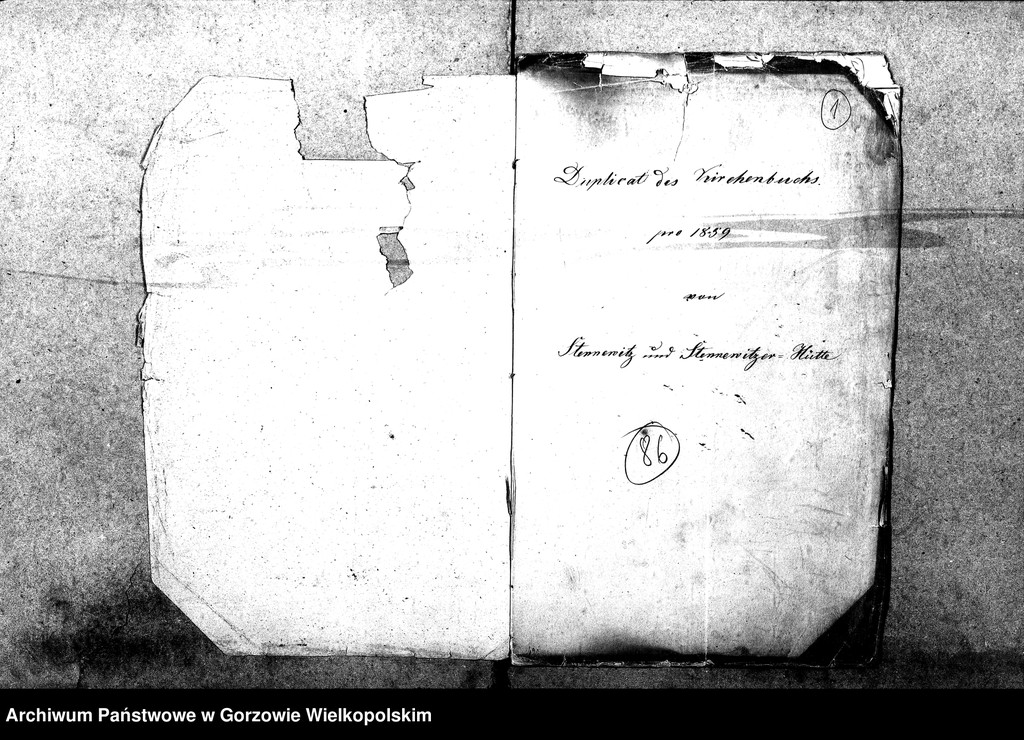 1
Duplicat des Kirchenbuchs.
pro 1859
von
Stennewitz und Stennewitzer=Hütte
86
Archiwum Państwowe w Gorzowie Wielkopolskim